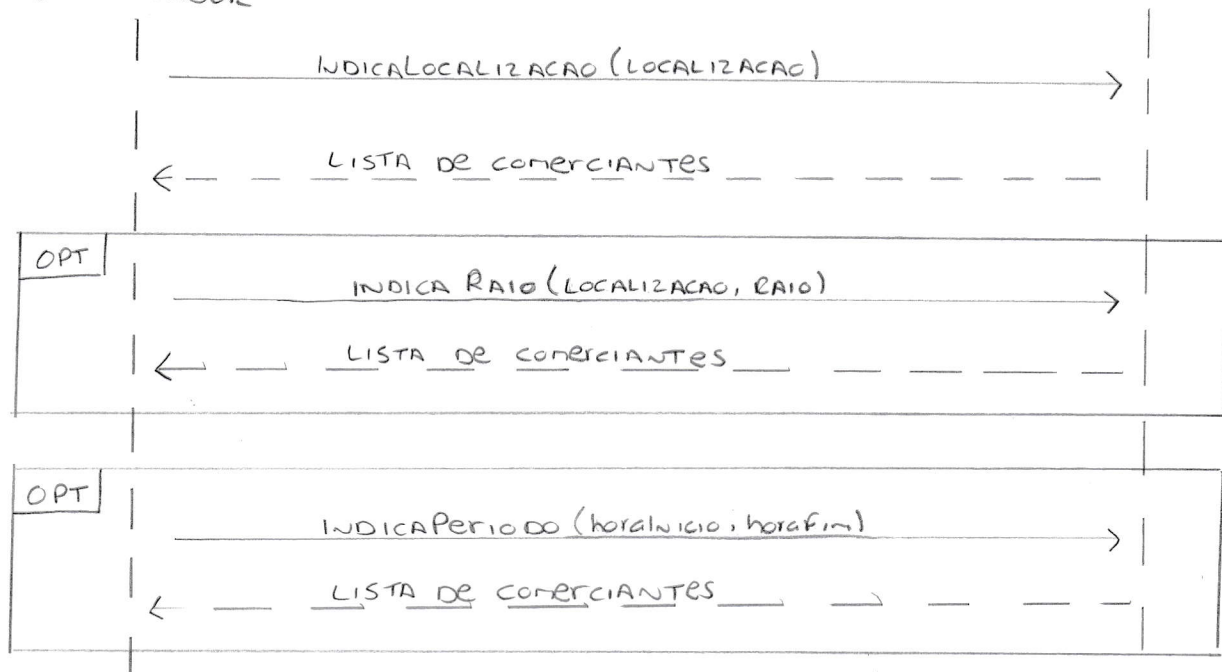 INDICALOCALIZACAO (LOCALIZACAO)
LISTA De comerciANTes
OPT
INDICA RAIO (LOCALIZACAO, RAIO)
LISTA De comerciANTes
OPT
INDICAPerioDO (horaInicio, horaFim)
LISTA De comerciANTes